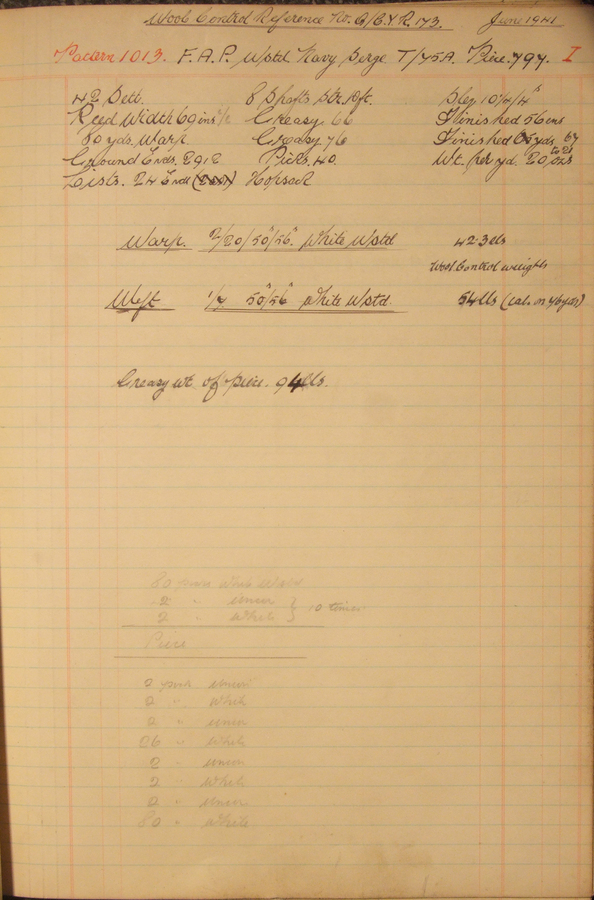 Wool Control Reference No. G/C.Y.R. 173. June 1941
Pattern 1013. F.A.P. Wstd Navy Serge T/45A. Piece 797. I
42 Sett. 8 Shafts Str. Dft. Sley 10/4/4s
Reed Width 69 ins 1/2 Greasy 66 Finished 56 ins
80 yds. Warp. Greasy 76 Finished yds. 67
Ground Ends. 2912 Picks. 40 Wt. per yd. 20 ozs to 21
Lists. 24 Ends Hopsack
Warp. 2/20/50s/56s White Wstd 42.3 lbs
Wool Control weights
Weft 1/7 50s/56s White Wstd. 54 lbs (cals. on 76 yds)
Greasy wt. of piece. 94 lbs.
80 White
2 "
2 " White } 10 times
Piece
2
2 " White
2 "
26 " White
2 "
2 " White
2 "
80 " White